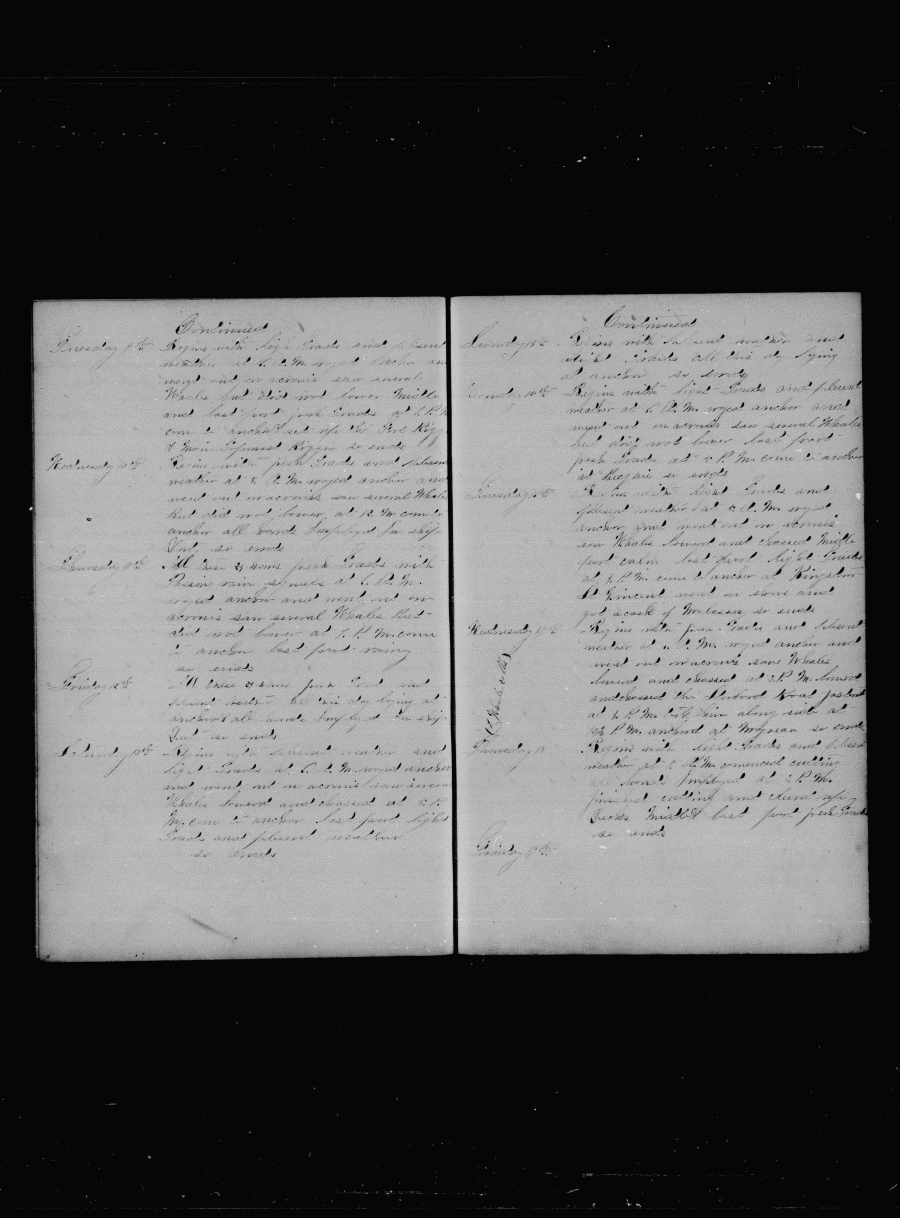 Continued
Tuesday 9th Begins with light Trads and plesent
weather at 6 A.M. wayed anchor and
went out on acrouis saw several
Whales but did not lower Middle
and last part fresh Trads at 6 P.M.
com to anchor set up the
so ends
Wednesday 10th Begins with fresh Trads and plesent
weather at 6 A.M. wayed anchor and
went out on acrouis saw several Whales
But did not lower, at 12 M. com to
anchor all hands Employed in ship
Dut so ends
Thursday 11th All these 24 hours fresh Trads with
Passing rain squals at 6 A.M.
wayed anchor and went out on
acrouis saw several Whales But
did not lower at P.M. come
to anchor last part rainy
so ends
Friday 12th All these 24 hours fresh Trad and
plesent weather all this day lying at
anchor all hands Employed in ship
Dut so ends
Saturday 13th Begins with plesent weather and
light Trads at 6 A.M. wayed anchor
and went out on acrouis saw several
Whales lowered and chassed at P.
M. com to anchor last part light
Trads and plesent weather
so ends
Continued
Sunday 14th Begins with plesent weather and
light Trads all this day lying
at anchor so ends
Monday 15th Begins with light Trads and plesent
weather at 6 A.M. wayed anchor and
went out on acrouis saw several Whales
but did not lower last part
fresh Trads at P.M. come to anchor
at Becquie so ends
Tuesday 16th Begins with light Trads and
plesent weather at A.M. wayed
anchor and went out on acrouis
saw Whales lowerd and chassed Middle
part calm last part light Trads
at P.M. come to anchor at Kingston
St Vincent went on shore and
got a cask of Molasses so ends
Wednesday 17th Begins with fresh Trads and plesent
weather at A.M. wayed anchor and
went out on acrouis saw Whales
lowerd and chassed at P.M. lowerd
and chassed the Starbord Boat fastend
at P.M. took him along side at
12 P.M. anchord at so ends
Thursday 18 Begins with light Trads and plesent
weather at A.M. comenced cutting
all hands Employed at P.M.
finished cutting and cleard up
Decks Middle & last part fresh Trads
so ends
Friday 19th